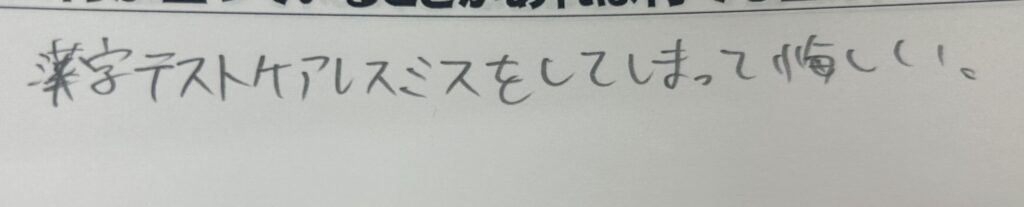 漢字テストケアレスミスをしてしまって悔しい。